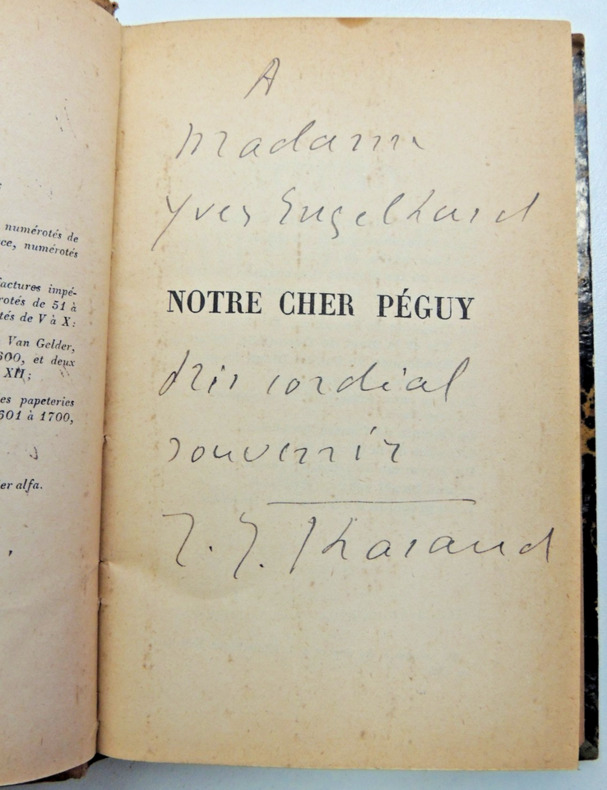 numérotés de
ce, numérotés
factures impé-
rotés de 51 à
tés de V à X;
Van Gelder,
600, et deux
XII;
es papeteries
601 à 1700,
er alfa.
A
Madame
Yves Engelhard
NOTRE CHER PÉGUY
très cordial
souvenir
J. J. Tharaud